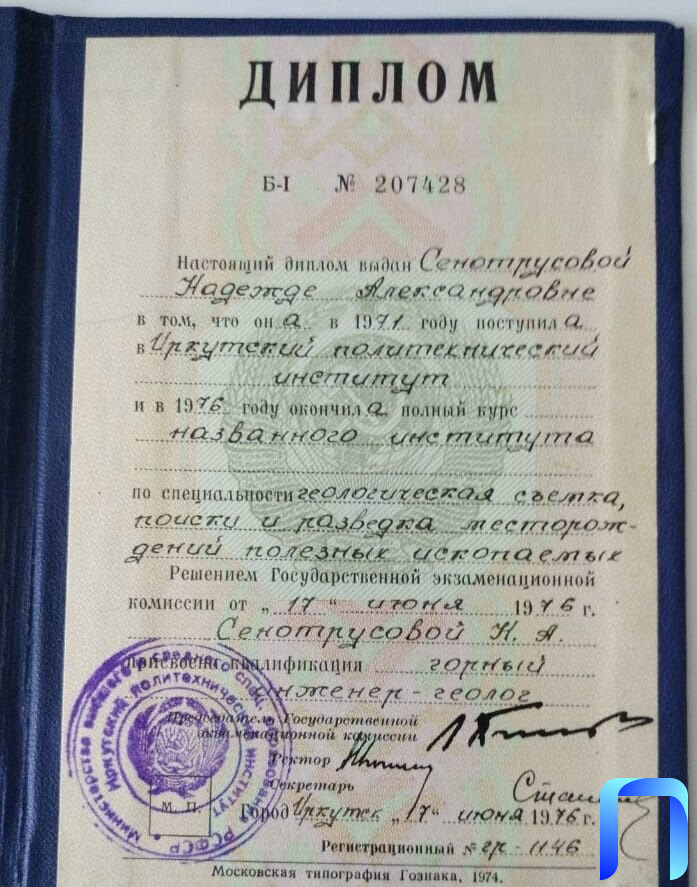 ДИПЛОМ
Б-I № 207428
Настоящий диплом выдан Сенотрусовой
Надежде Александровне
в том, что он а в 1971 году поступил а
в Иркутский политехнический
институт
и в 1976 году окончил а полный курс
названного института
по специальности геологическая съемка,
поиски и разведка месторож-
дений полезных ископаемых
Решением Государственной экзаменационной
комиссии от „17“ июня 1976 г.
Сенотрусовой Н. А.
присвоена квалификация горный
инженер-геолог
Председатель Государственной
экзаменационной комиссии
Ректор
Секретарь
М. П.
Город Иркутск „17“ июня 1976 г.
Регистрационный № гр-1146
Московская типография Гознака, 1974.
Министерство высшего и среднего спец. образования РСФСР
Иркутский политехнический институт